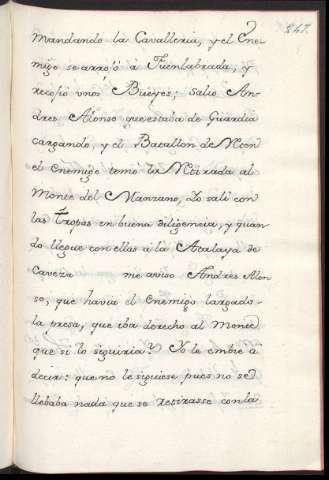 247.
mandando la Cavalleria, y el Ene-
migo se arrojó à Fuenlabrada, y
recojio unos Bueyes; salio An-
dres Alonso que estaba de Guardia
cargando, y el Batallon de
el Enemigo tomo la Retirada al
Monte del Manzano, Yo sali con
las Tropas en buena diligencia, y quan-
do llegue con ellas a la Atalaya de
Caveza me aviso Andres Alon
so, que havia el Enemigo largado
la presa, que iba derecho al Monte
que si lo siguiria? Yo le embie à
decir: que no le siguiese pues no se
llebaba nada que se retirasse con la